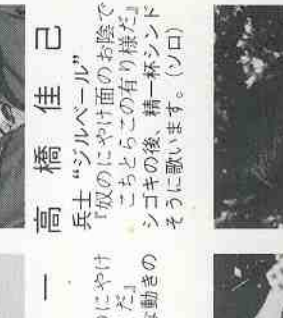 一
のにやけ
だ』
な動きの
高橋佳己
兵士“ジルベール”
『奴のにやけ面のお陰で
こちとらこの有り様だ』
シゴキの後、精一杯シンド
そうに歌います。(ソロ)